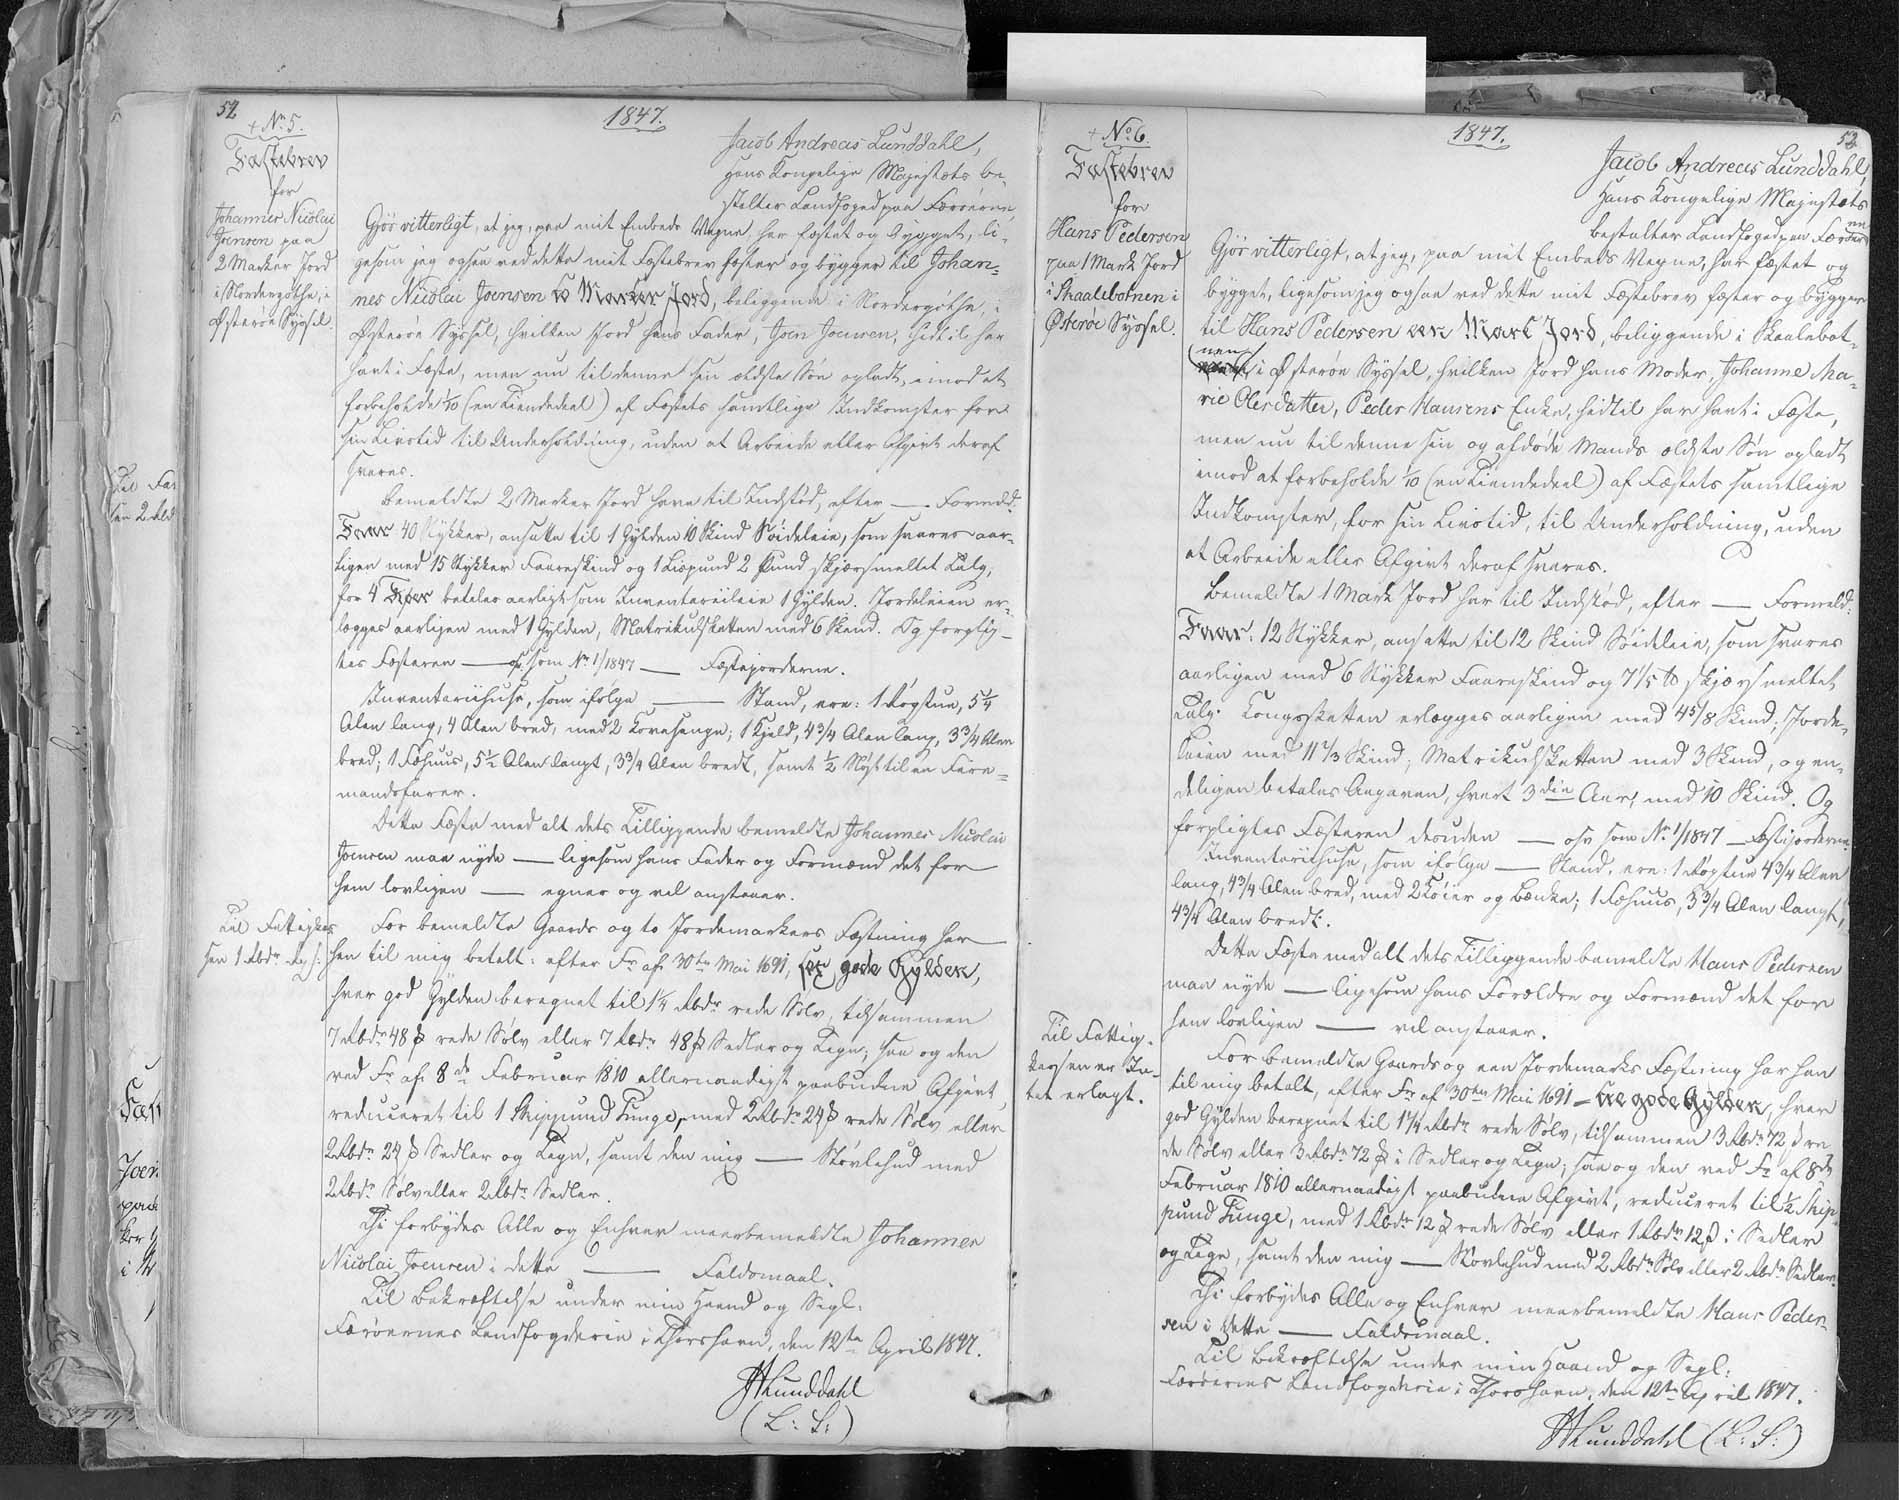 52
1847.
+ No 5.
Fæstebrev
for
Johannes Nicolai
Joensen paa
2 Marker Jord
i Nordergøthe, i
Østerøe Syssel.
Jacob Andreas Lunddahl,
Hans Kongelige Majestæts be-
stalter Landfoged paa Færøerne,
Gjør vitterligt, at jeg, paa mit Embeds Vegne, har fæstet og bygget, li-
gesom jeg ogsaa ved dette mit Fæstebrev fæster og bygger til Johan-
nes Nicolai Joensen to Marker Jord, beliggende i Nordergøthe, i
Østerøe Syssel, hvilken Jord hans Fader, Joen Joensen, hidtil har
havt i Fæste, men nu til denne sin ældste Søn opladt, imod at
forbeholde 1/10 (en Tiendedeel) af Fæstets samtlige Indkomster for
sin Livstid til Underholdning, uden at Arbeide eller Afgivt deraf
svares.
Bemeldte 2 Marker Jord have til Indstød, efter — Formeld:
Faar 40 Stykker, ansatte til 1 Gylden 10 Skind Søideleie, som svares aar-
ligen med 15 Stykker Faareskind og 1 Lispund 2 Pund skjærsmeltet Talg,
for 4 Kjøer betales aarligt som Inventariileie 1 Gylden. Jordeleien er-
lægges aarligen med 1 Gylden, Matrikulskatten med 6 Skind. Og forplig-
tes Fæsteren — osv. som No 1/1847 — Fæstejorderne.
Inventariihuse, som ifølge — Stand, ere: 1 Røgstue, 5 1/4
Alen lang, 4 Alen bred, med 2 Kovesenge; 1 Hjeld, 4 3/4 Alen lang, 3 3/4 Alen
bred; 1 Fæhuus, 5 1/2 Alen langt, 3 3/4 Alen bredt, samt 1/2 Nøst til en Fire-
mandsfarer.
Dette Fæste med alt dets Tilliggende bemeldte Johannes Nicolai
Joensen maa nyde — ligesom hans Fader og Formænd det før
ham lovligen — egner og vel anstaaer.
Til Fattigkas
sen 1 Rbdr. Rep. S:
For bemeldte Gaards og to Jordemarkers Fæstning har
han til mig betalt: efter Fr. af 30te Mai 1691, sex gode Gylden,
hver god Gylden beregnet til 1 1/4 Rbdr rede Sølv, tilsammen
7 Rbdr 48 ß rede Sølv eller 7 Rbdr 48 ß Sedler og Tegn; saa og den
ved Fr. af 8de Februar 1810 allernaadigst paabudne Afgivt,
reduceret til 1 Skippund Tunge, med 2 Rbdr 24 ß rede Sølv eller
2 Rbdr 24 ß Sedler og Tegn, samt den mig — Støvlehud med
2 Rbdr Sølv eller 2 Rbdr Sedler.
Thi forbydes Alle og Enhver meerbemeldte Johannes
Nicolai Joensen i dette — Faldsmaal.
Til Bekræftelse under min Haand og Segl.
Færøernes Landfogderie i Thorshavn, den 12te April 1847.
JALunddahl
(L: S:)
53
1847.
+ No 6.
Fæstebrev
for
Hans Pedersen
paa 1 Mark Jord
i Skaalebotnen i
Østerøe Syssel.
Jacob Andreas Lunddahl,
Hans Kongelige Majestæts
bestalter Landfoged paa Færøerne
Gjør vitterligt, at jeg, paa mit Embeds Vegne, har fæstet og
bygget, ligesom jeg ogsaa ved dette mit Fæstebrev fæster og bygger
til Hans Pedersen een Mark Jord, beliggende i Skaalebot-
nen i Østerøe Syssel, hvilken Jord hans Moder, Johanne Ma-
rie Olesdatter, Peder Hansens Enke, hidtil har havt i Fæste,
men nu til denne sin og afdøde Mands ældste Søn opladt
imod at forbeholde 1/10 (en Tiendedeel) af Fæstets samtlige
Indkomster, for sin Livstid, til Underholdning, uden
at Arbeide eller Afgivt deraf svares.
Bemeldte 1 Mark Jord har til Indstød, efter — Formeld:
Faar: 12 Stykker, ansatte til 12 Skind Søideleie, som svares
aarligen med 6 Stykker Faareskind og 7 1/5 ℔ skjærsmeltet
Talg. Kongsskatten erlægges aarligen med 4 5/8 Skind; Jorde-
leien med 11 1/3 Skind; Matrikulskatten med 3 Skind, og en-
deligen betales Angaven, hvert 3die Aar, med 10 Skind. Og
forpligtes Fæsteren desuden — osv som No 1/1847 — Fæstejorderne.
Inventariihuse, som ifølge — Stand, ere: 1 Røgstue 4 3/4 Alen
lang, 4 3/4 Alen bred, med 2 Køier og Bænke; 1 Fæhuus, 5 3/4 Alen langt,
4 3/4 Alen bredt.
Dette Fæste med alt dets Tilliggende bemeldte Hans Pedersen
maa nyde — ligesom hans Forældre og Formænd det før
ham lovligen — vel anstaaer.
Til Fattig-
kassen er In-
tet erlagt.
For bemeldte Gaards og een Jordemarks Fæstning har han
til mig betalt, efter Fr. af 30te Mai 1691 – tre gode Gylden, hver
god Gylden beregnet til 1 1/4 Rbdr rede Sølv, tilsammen 3 Rbdr 72 ß re-
de Sølv eller 3 Rbdr 72 ß i Sedler og Tegn; saa og den ved Fr. af 8de
Februar 1810 allernaadigst paabudne Afgivt, reduceret til 1/2 Skip-
pund Tunge, med 1 Rbdr 12 ß rede Sølv eller 1 Rbdr 12 ß i Sedler
og Tegn, samt den mig — Støvlehud med 2 Rbdr Sølv eller 2 Rbdr Sedler.
Thi forbydes Alle og Enhver meerbemeldte Hans Peder-
sen i dette — Faldsmaal.
Til Bekræftelse under min Haand og Segl:
Færøernes Landfogderie i Thorshavn, den 12te April 1847.
JALunddahl (L: S:)